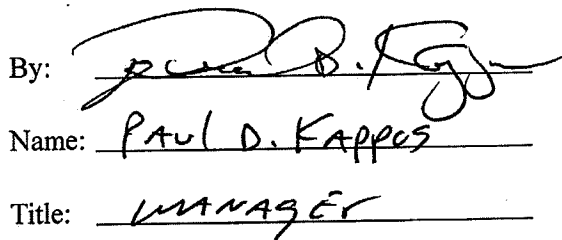 By:
Name: PAUl D. KAPPOS
Title: MANAGEr